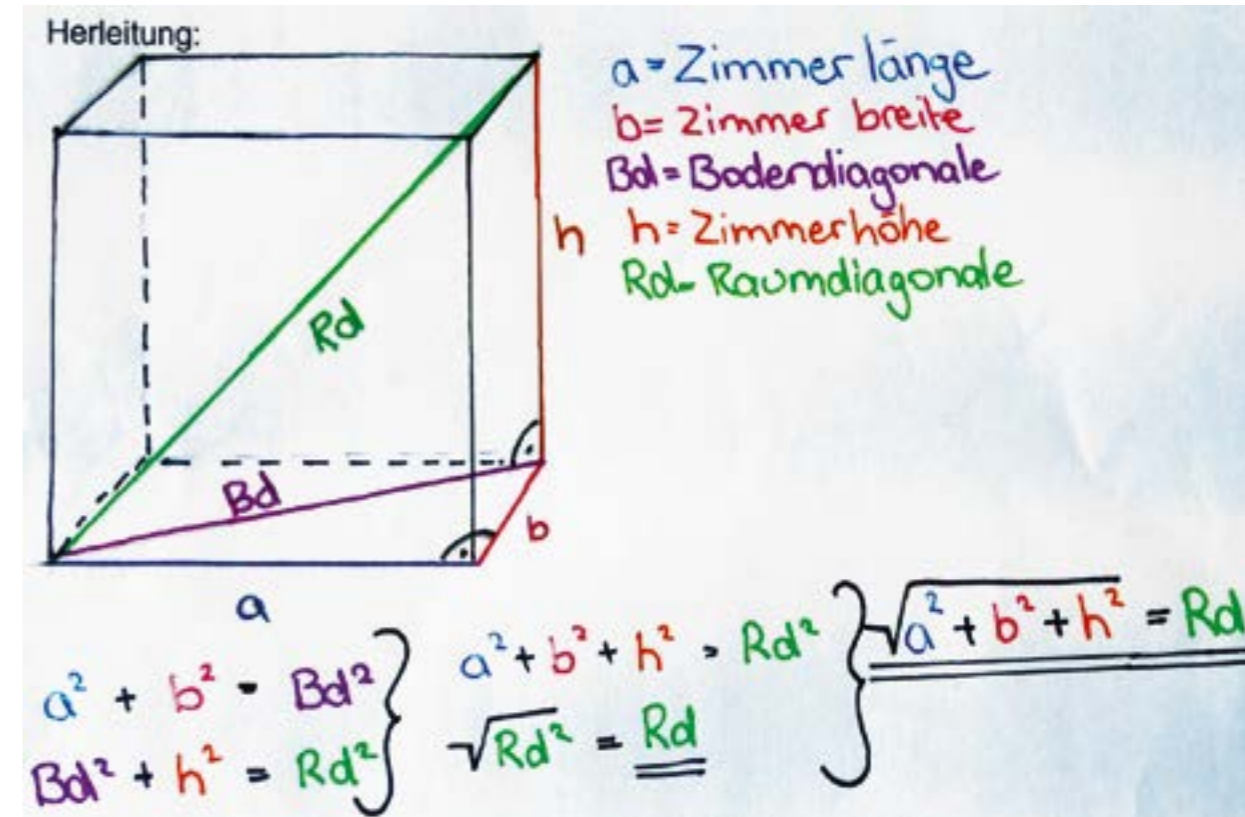 Herleitung:
a = Zimmer länge
b= Zimmer breite
Bd = Bodendiagonale
h = Zimmerhöhe
Rd= Raumdiagonale
h
Rd
Bd
b
a
a² + b² = Bd²
Bd² + h² = Rd²
a² + b² + h² = Rd²
√Rd² = Rd
√a² + b² + h² = Rd